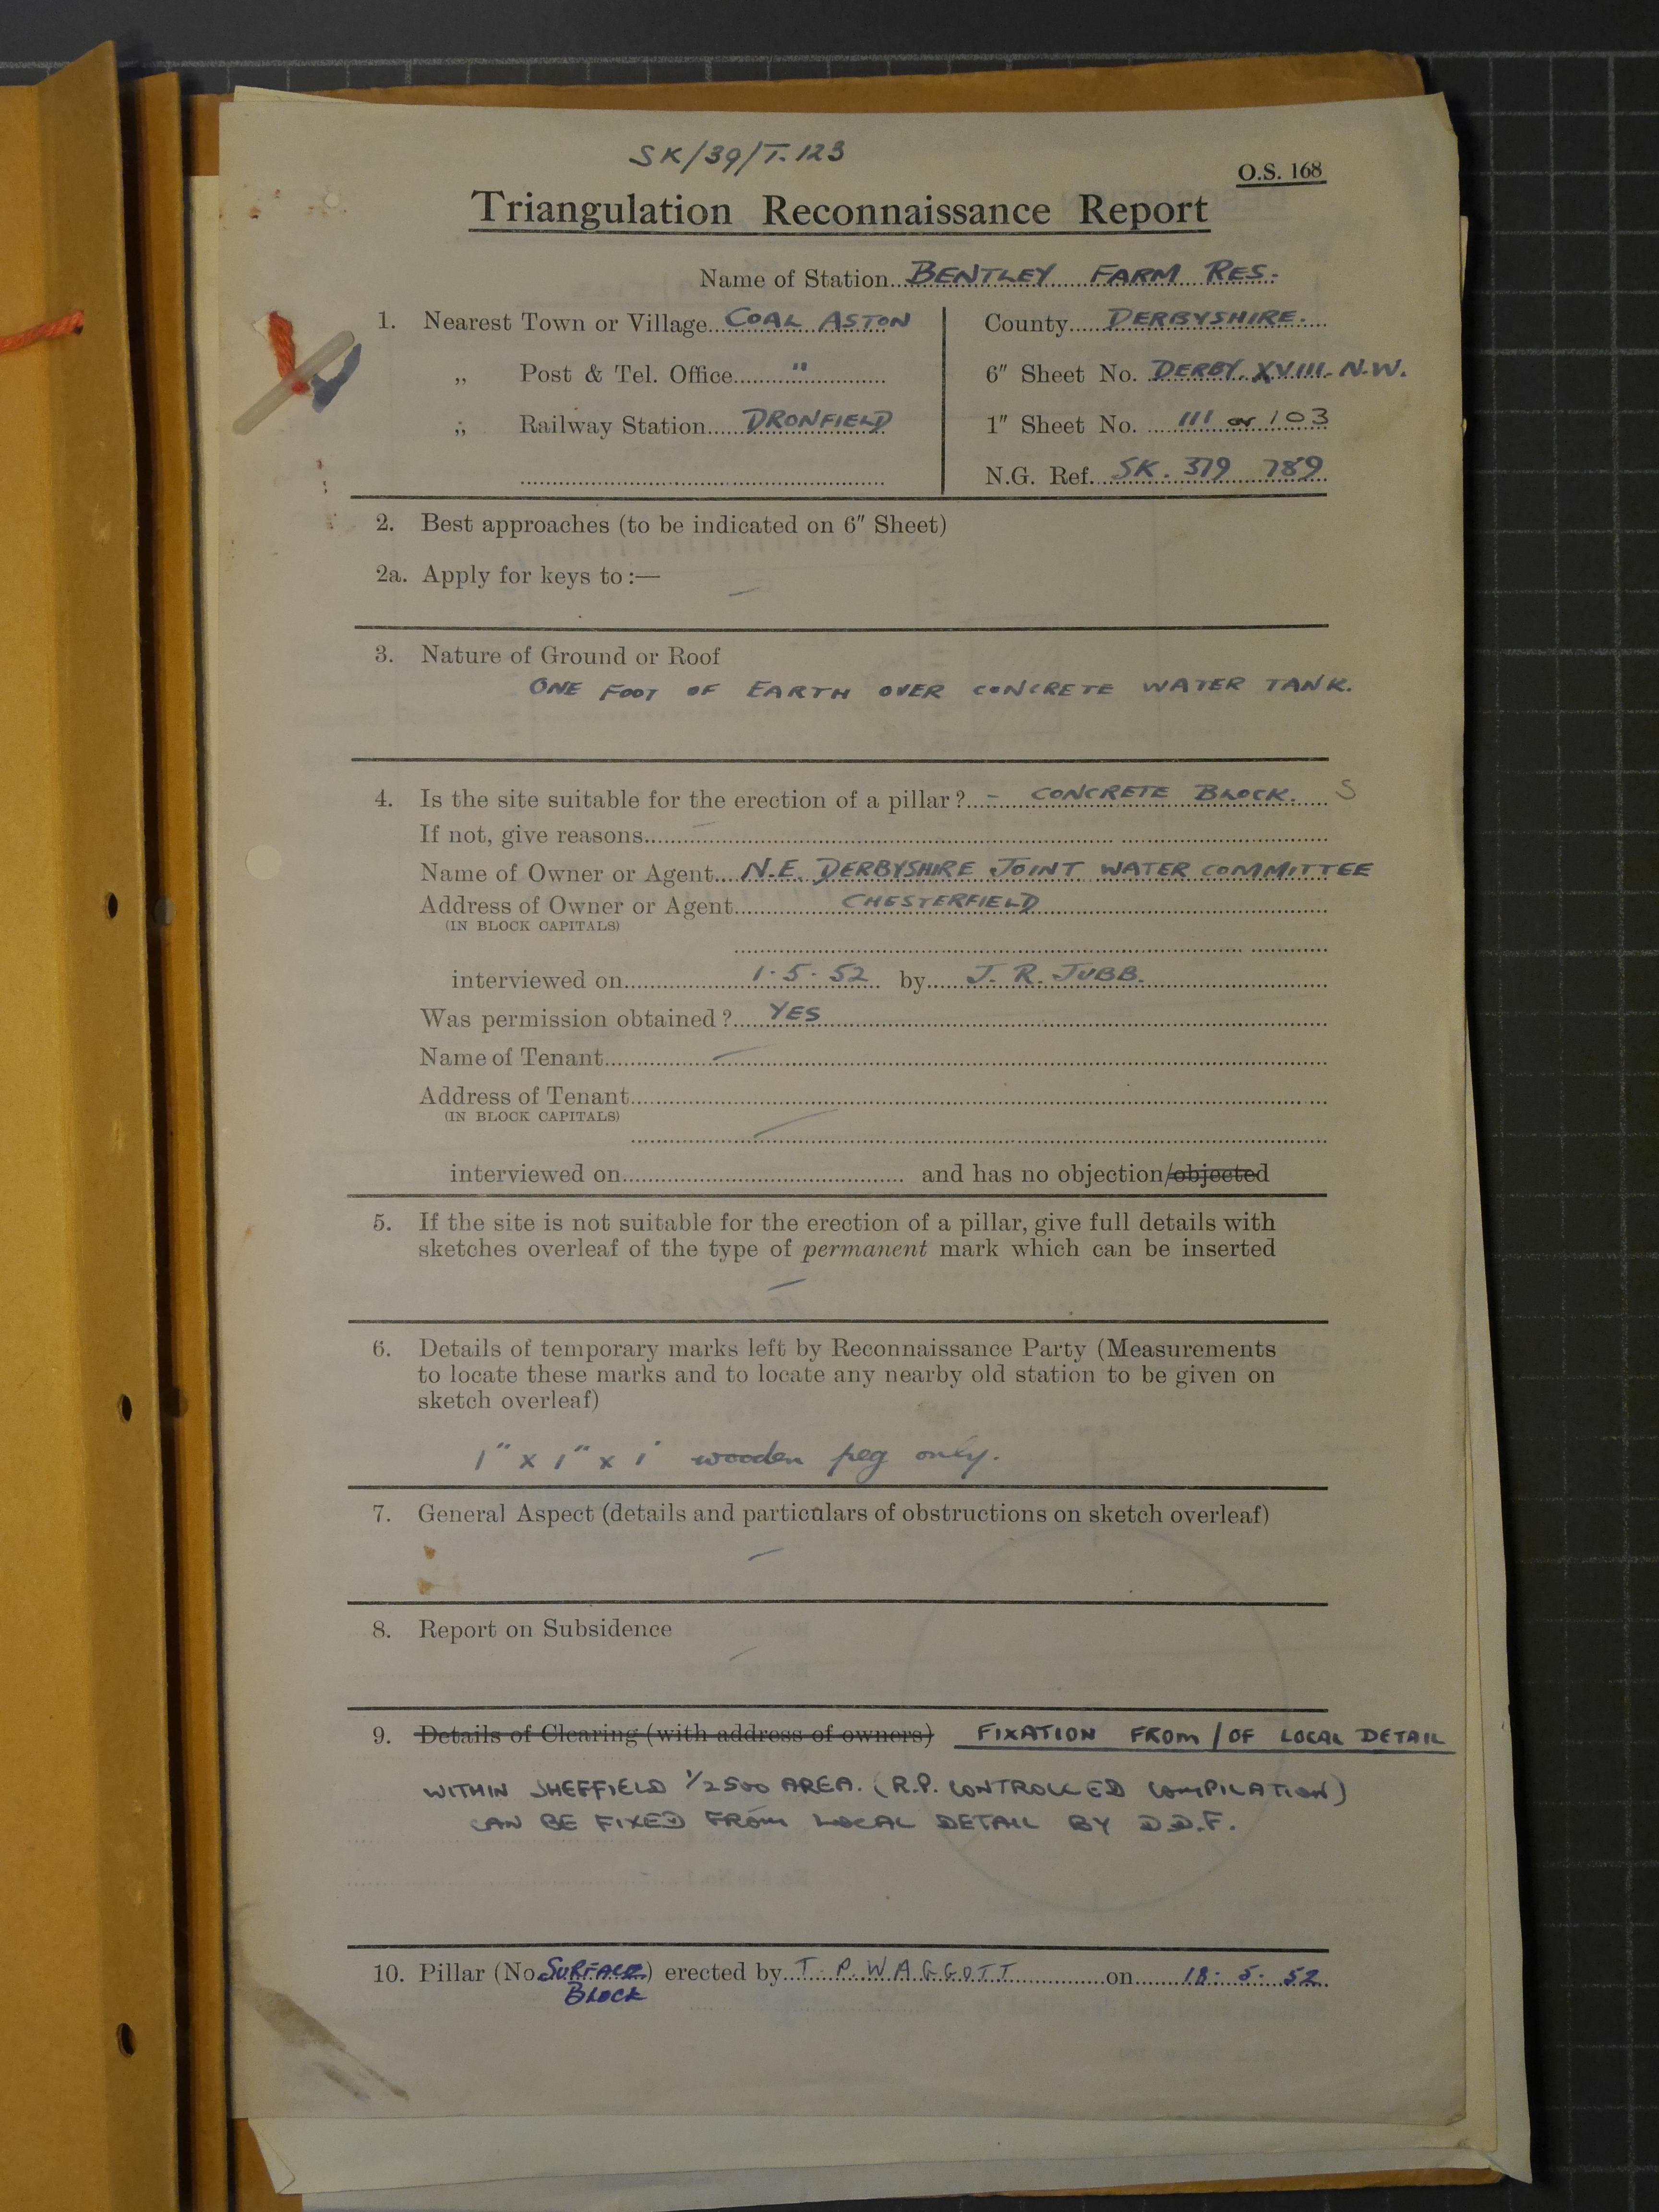 SK/39/T.123
O.S. 168
Triangulation Reconnaissance Report
Name of Station BENTLEY FARM RES.
1. Nearest Town or Village COAL ASTON
County DERBYSHIRE.
„ Post & Tel. Office "
6" Sheet No. DERBY. XVIII. N.W.
„ Railway Station DRONFIELD
1" Sheet No. 111 or 103
N.G. Ref. SK. 379 789
2. Best approaches (to be indicated on 6" Sheet)
2a. Apply for keys to :— –
3. Nature of Ground or Roof
ONE FOOT OF EARTH OVER CONCRETE WATER TANK.
4. Is the site suitable for the erection of a pillar? – CONCRETE BLOCK. S
If not, give reasons –
Name of Owner or Agent N.E. DERBYSHIRE JOINT WATER COMMITTEE
Address of Owner or Agent CHESTERFIELD
(IN BLOCK CAPITALS)
interviewed on 1.5.52 by J. R. JUBB.
Was permission obtained? YES
Name of Tenant –
Address of Tenant
(IN BLOCK CAPITALS) –
interviewed on and has no objection/objected
5. If the site is not suitable for the erection of a pillar, give full details with
sketches overleaf of the type of permanent mark which can be inserted
–
6. Details of temporary marks left by Reconnaissance Party (Measurements
to locate these marks and to locate any nearby old station to be given on
sketch overleaf)
1" x 1" x 1' wooden peg only.
7. General Aspect (details and particulars of obstructions on sketch overleaf)
–
8. Report on Subsidence
–
9. Details of Clearing (with address of owners) FIXATION FROM / OF LOCAL DETAIL
WITHIN SHEFFIELD 1/2500 AREA. (R.P. CONTROLLED COMPILATION)
CAN BE FIXED FROM LOCAL DETAIL BY D.D.F.
10. Pillar (No. SURFACE) erected by T. P. WAGGOTT on 18. 5. 52
BLOCK